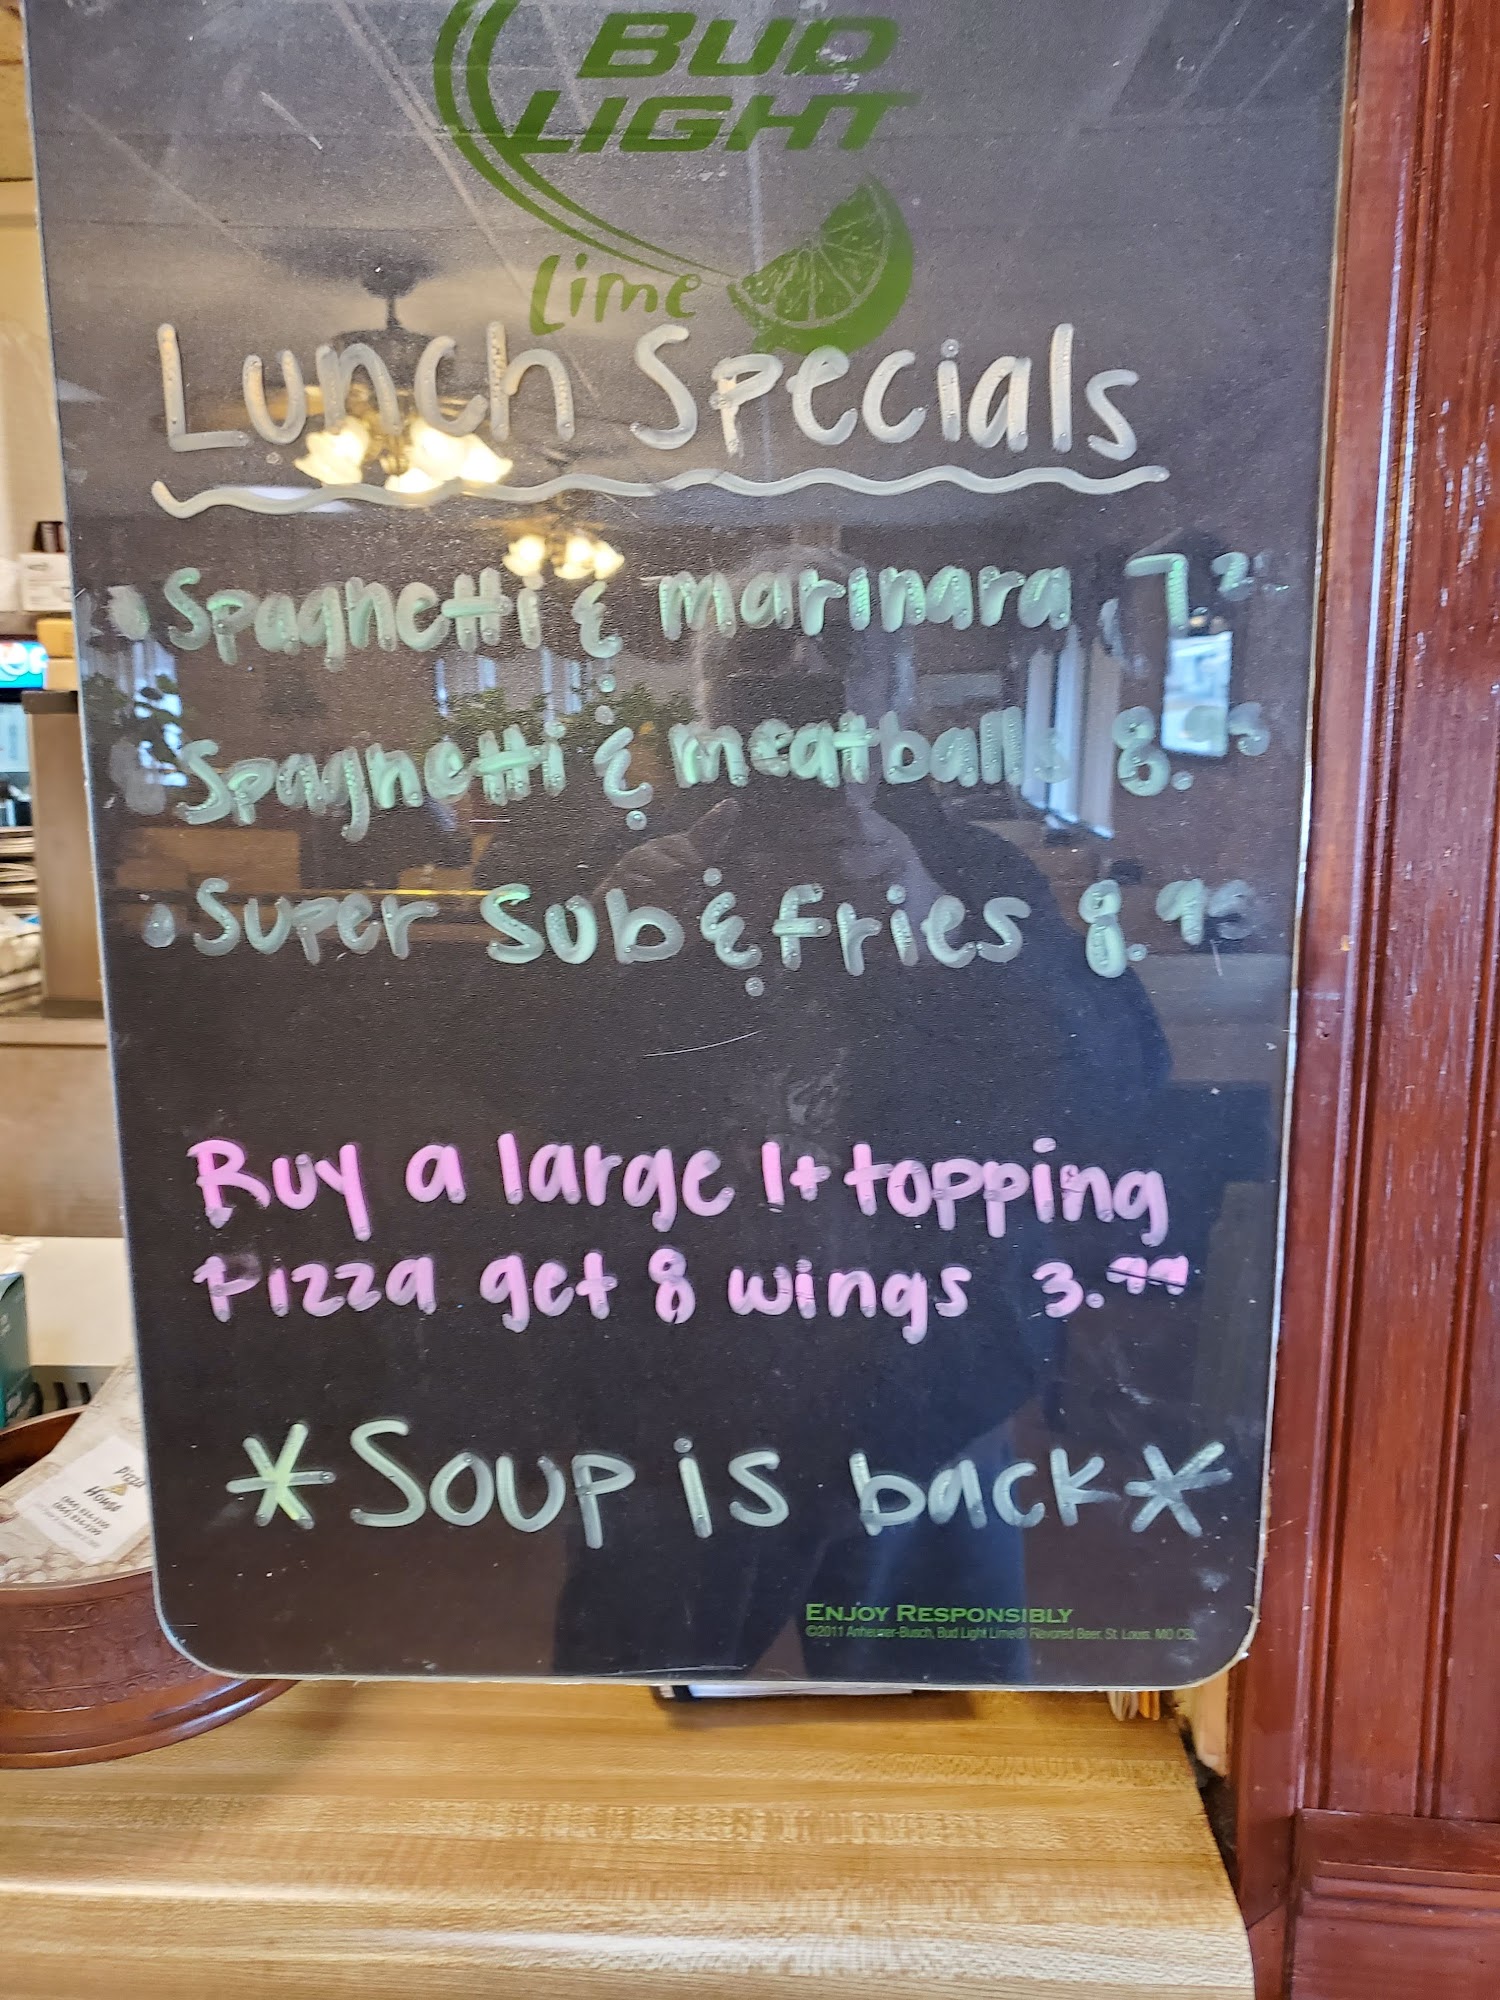 BUD
LIGHT
Lime
Lunch Specials
• Spaghetti & marinara
• Spaghetti & meatballs 8.95
• Super Sub & fries 8.95
Buy a large 1+ topping
Pizza get 8 wings 3.99
*Soup is back*
ENJOY RESPONSIBLY
©2011 Anheuser-Busch, Bud Light Lime® Flavored Beer, St. Louis, MO
Pizza
House